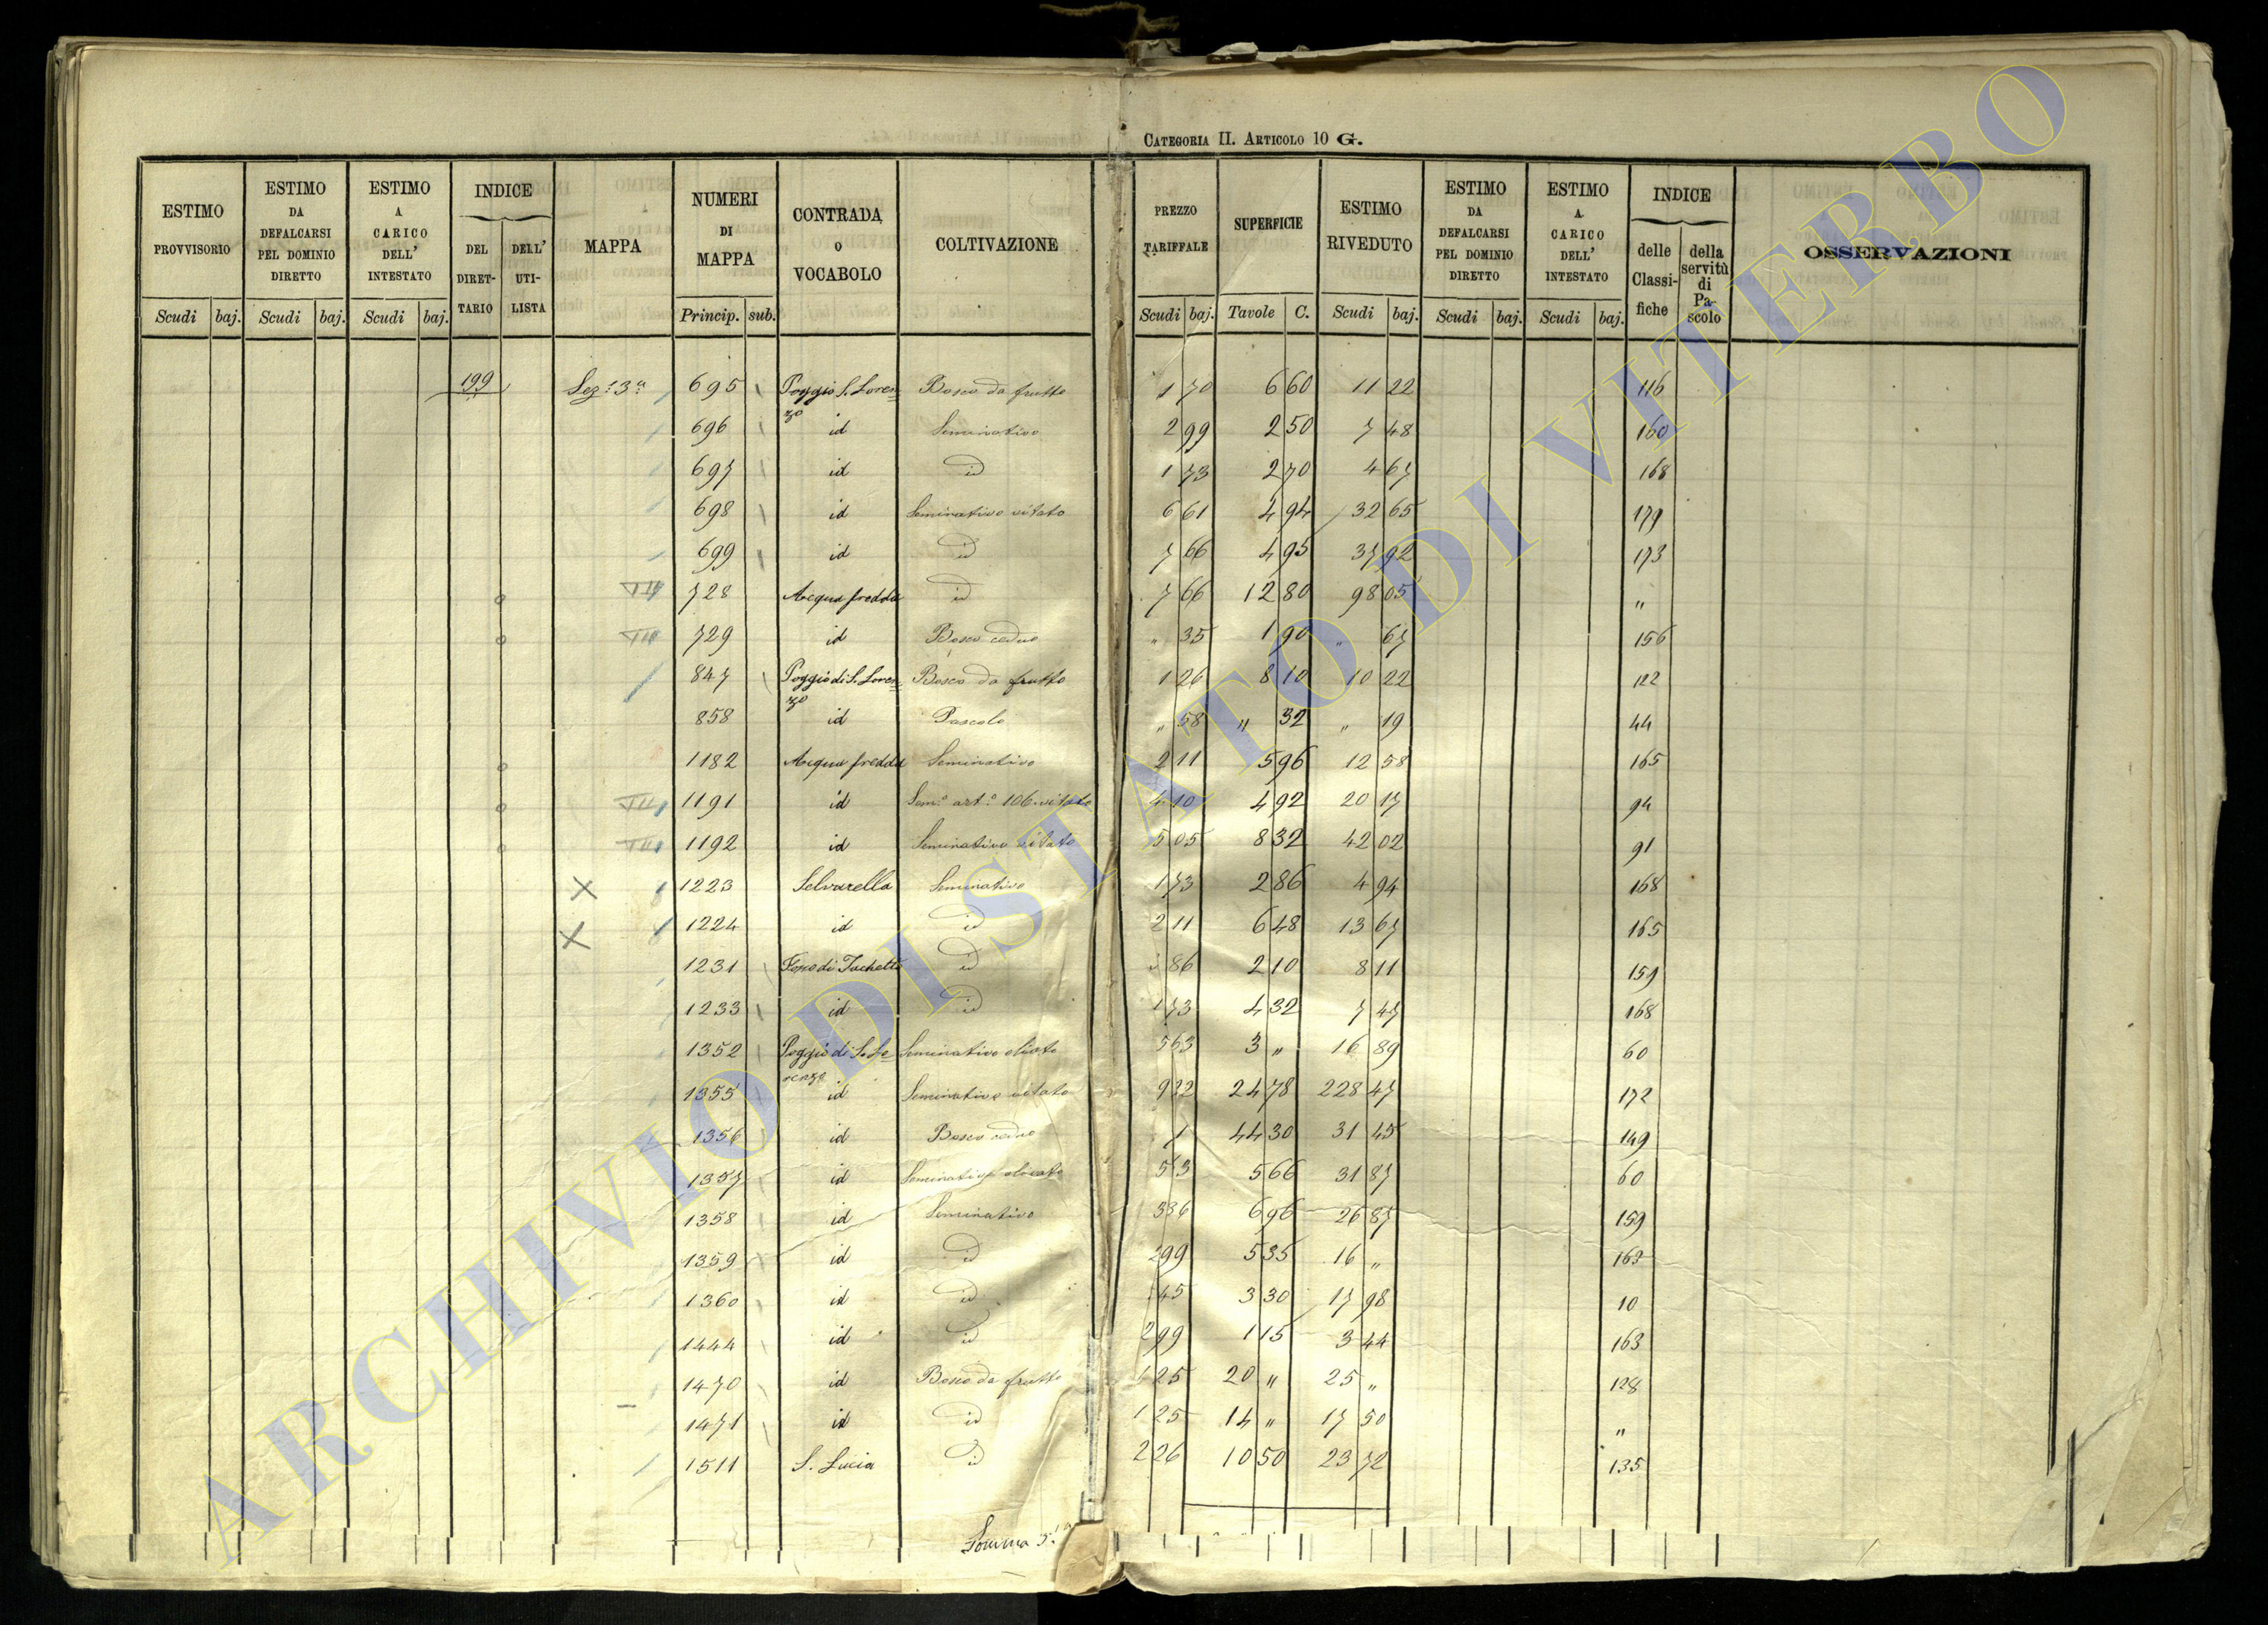 CATEGORIA II. ARTICOLO 10 G.
ESTIMO PROVVISORIO | ESTIMO DA DEFALCARSI PEL DOMINIO DIRETTO | ESTIMO A CARICO DELL' INTESTATO | INDICE DEL DIRETTARIO | DELL' UTILISTA | MAPPA | NUMERI DI MAPPA | CONTRADA O VOCABOLO | COLTIVAZIONE | PREZZO TARIFFALE | SUPERFICIE | ESTIMO RIVEDUTO | ESTIMO DA DEFALCARSI PEL DOMINIO DIRETTO | ESTIMO A CARICO DELL' INTESTATO | INDICE delle Classifiche | della servitù di Pascolo | OSSERVAZIONI
Scudi baj. | Scudi baj. | Scudi baj. | Princip. sub. | Scudi baj. | Tavole C. | Scudi baj. | Scudi baj. | Scudi baj.
199 Sez: 3a 695 Poggio S. Loren= Bosco da frutto 1 70 6 60 11 22 116
zo
696 id Seminativo 2 99 2 50 7 48 160
697 id id 1 73 2 70 4 67 168
698 id Seminativo vitato 6 61 4 94 32 65 179
699 id id 7 66 4 95 37 92 173
728 Acqua fredda id 7 66 12 80 98 05 "
729 id Bosco ceduo " 35 1 90 " 67 156
847 Poggio di S. Loren= Bosco da frutto 1 26 8 10 10 22 122
zo
858 id Pascolo " 58 " 32 " 19 44
1182 Acqua fredda Seminativo 2 11 5 96 12 58 165
1191 id Sem.o art.o 106. vitato 4 10 4 92 20 17 94
1192 id Seminativo vitato 5 05 8 32 42 02 91
X 1223 Selvarella Seminativo 1 73 2 86 4 94 168
X 1224 id id 2 11 6 48 13 67 165
1231 id 86 2 10 8 11 159
1233 id id 1 73 4 32 7 47 168
1352 Poggio di S. Lo= Seminativo olivato 5 63 3 " 16 89 60
renzo
1355 id Seminativo vitato 9 22 24 78 228 47 172
1356 id Bosco ceduo 44 30 31 45 149
1357 id Seminativo olivato 5 63 5 66 31 87 60
1358 id Seminativo 3 86 6 96 26 87 159
1359 id id 2 99 5 35 16 " 163
1360 id id 45 3 30 17 98 10
1444 id id 2 99 1 15 3 44 163
1470 id Bosco da frutto 1 25 20 " 25 " 128
1471 id id 1 25 14 " 17 50 "
1511 S. Lucia id 2 26 10 50 23 72 135
Somma
ARCHIVIO DI STATO DI VITERBO